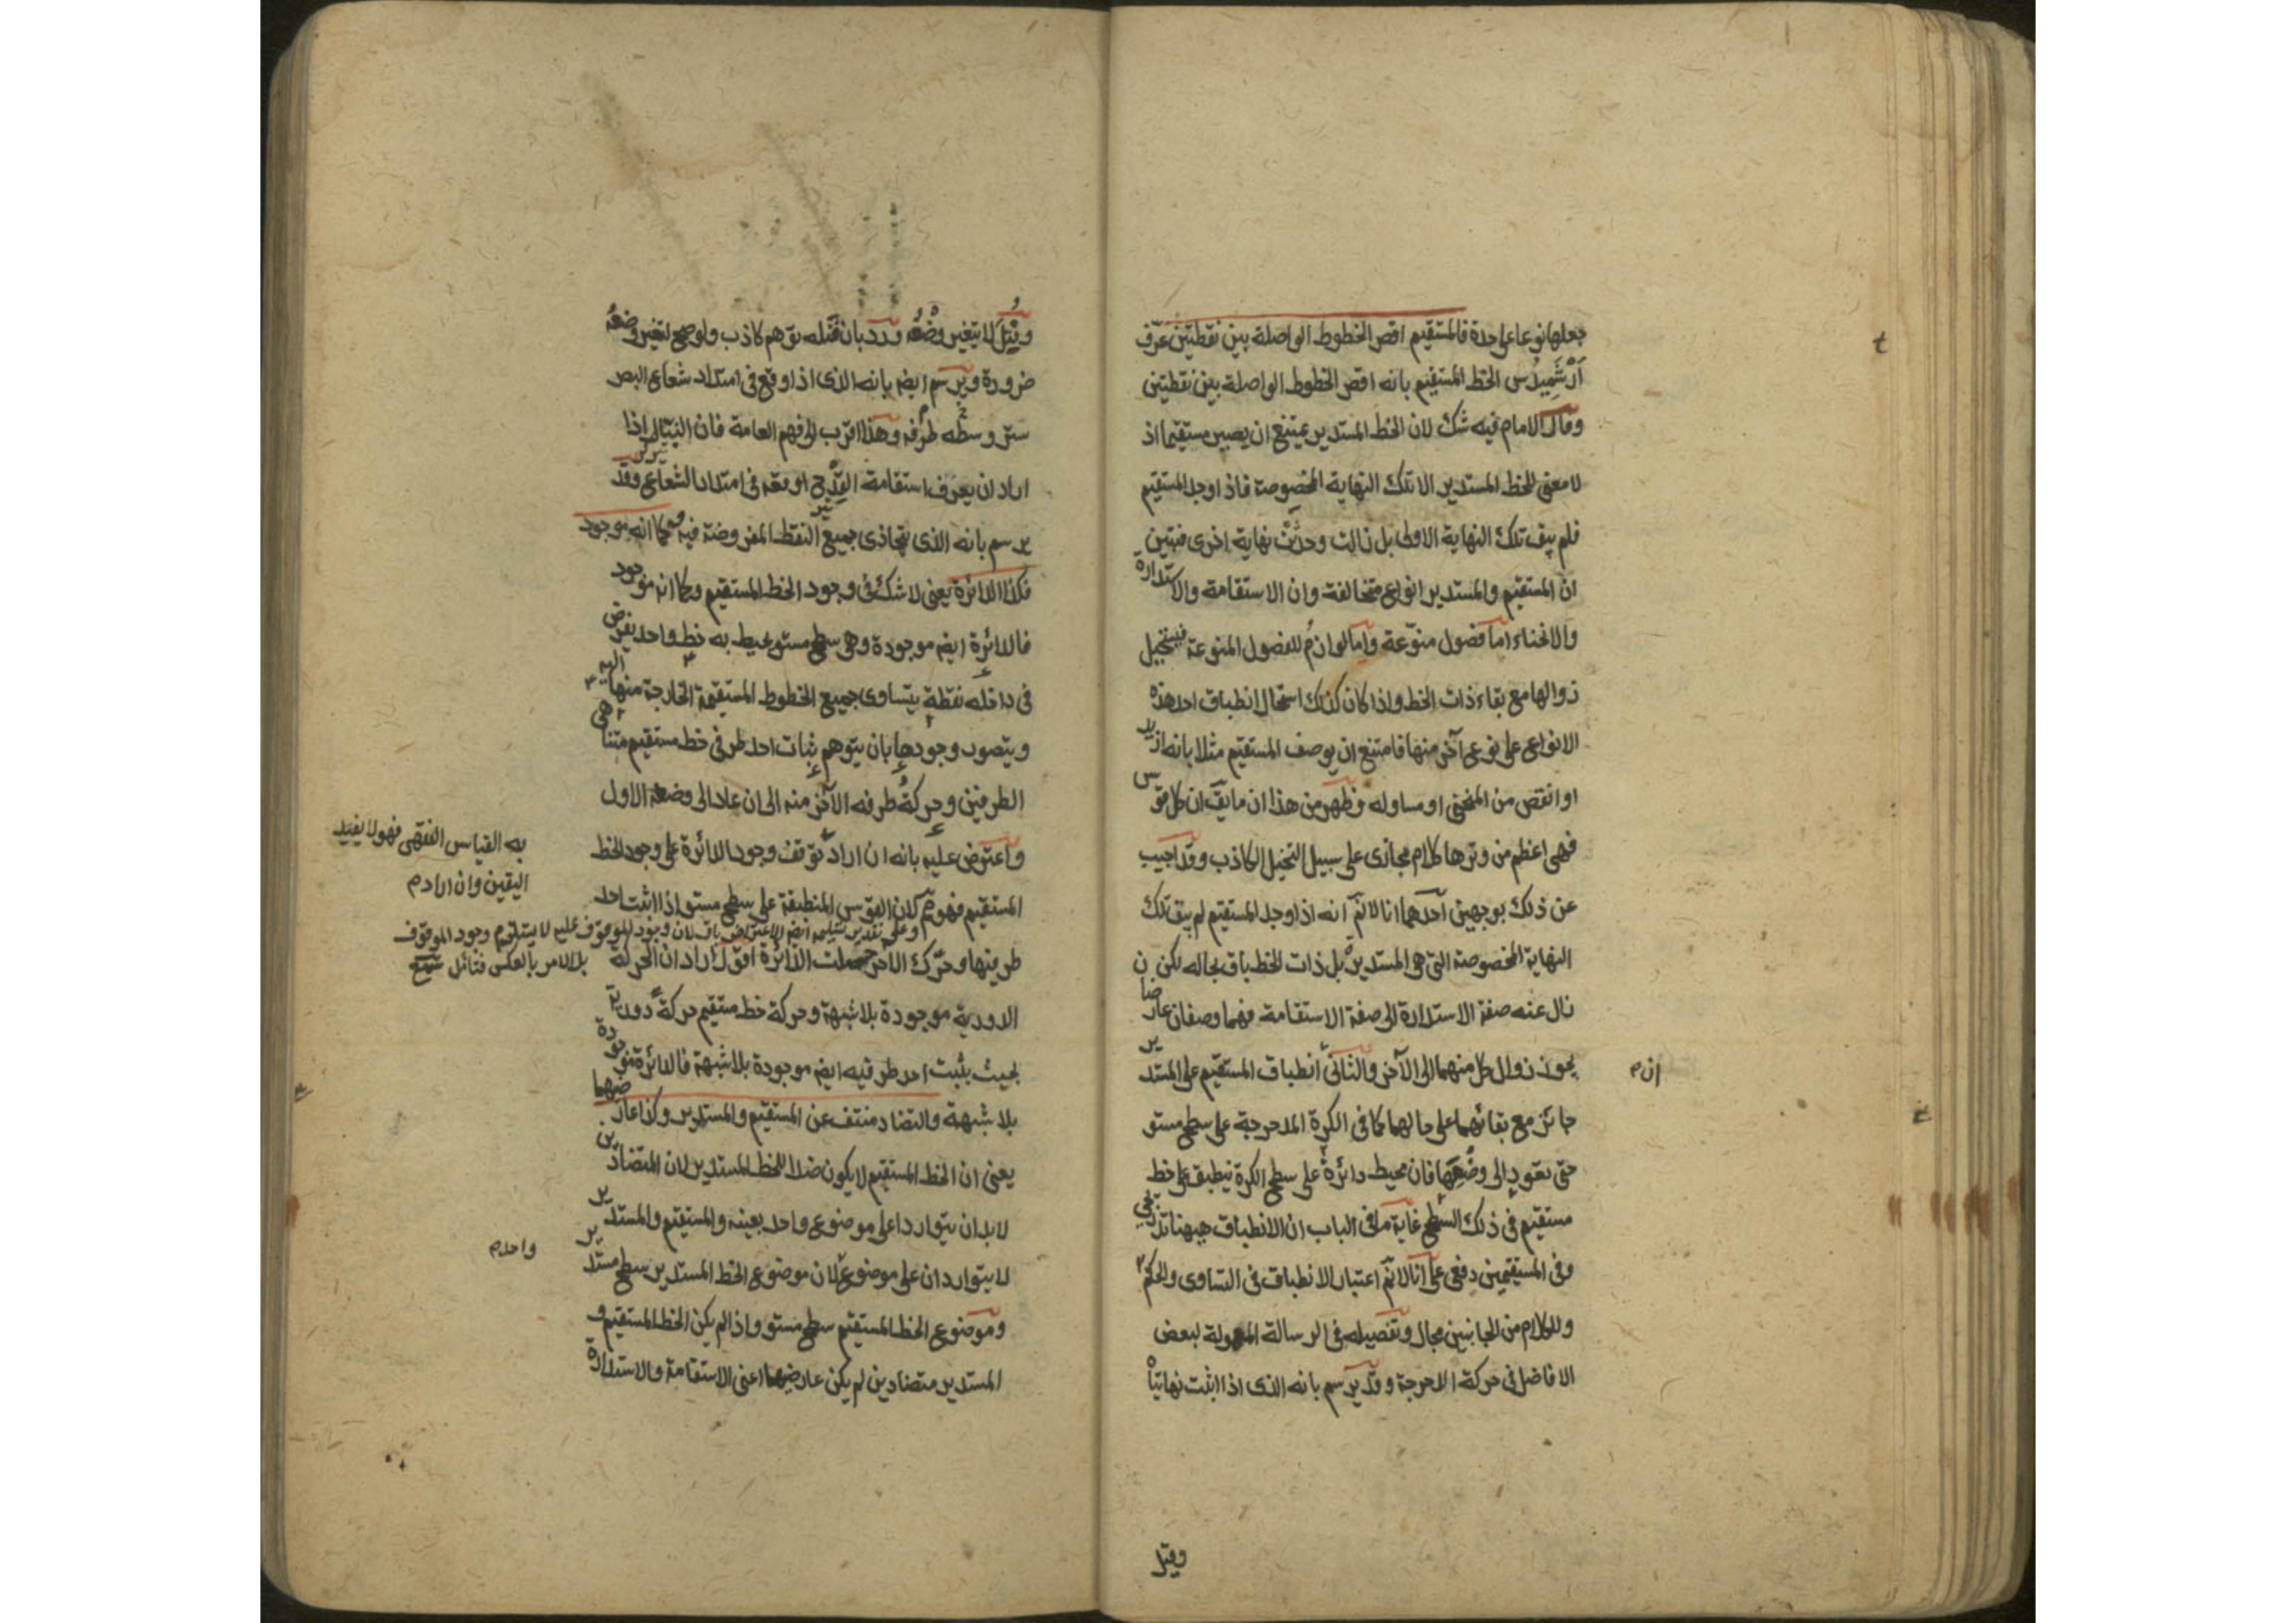 جعلها نوعا على حدة فالمستقيم اقصر الخطوط الواصلة بين نقطتين عرّف
اَرْشَمِيدُس الخط المستقيم بانه اقصر الخطوط الواصلة بين نقطتين
وقال الامام فيه شك لان الخط المستدير يمتنع ان يصير مستقيما اذ
لا معنى للخط المستدير الا تلك النهاية المخصوصة فاذا وجد المستقيم
فلم يبق تلك النهاية الاولى بل زالت وحدثت نهاية اخرى فتبين
ان المستقيم والمستدير انواع متخالفة وان الاستقامة والاستدارة
والانحناء اما فصول منوّعة واما لوازم للفصول المنوعة فيستحيل
زوالها مع بقاء ذات الخط واذا كان كذلك استحال انطباق احد هذه
الانواع على نوع آخر منها فامتنع ان يوصف المستقيم مثلا بانه ازيد
او انقص من المنحنى او مساو له فظهر من هذا ان ما يقٓ ان كل قوس
فهى اعظم من وترها كلام مجازى على سبيل التخيل الكاذب وقد اجيب
عن ذلك بوجهين احدهما انا لانمٓ انه اذا وجد المستقيم لم يبق تلك
النهاية المخصوصة التى هى المستديرة بل ذات الخط باق بحاله لكن
زال عنه صفة الاستدارة الى صفة الاستقامة فهما وصفان عارضان
يجوز زوال كل منهما الى الآخر والثانى انطباق المستقيم على المستدير
ان م
جائز مع بقائهما على حالهما كما فى الكرة المدحرجة على سطح مستو
حتى تعود الى وضعها فان محيط دائرة على سطح الكرة ينطبق على خط
مستقيم فى ذلك السطح غاية ما فى الباب ان الانطباق ههنا تدريجى
وفى المستقيمين دفعى على انا لانمٓ اعتبار الانطباق فى التساوى والحكم
وللكلام من الجانبين مجال وتفصيله فى الرسالة المعمولة لبعض
الافاضل فى حركة الدحرجة وقد يرسم بانه الذى اذا اثبت نهايتاه
وقيل
وقيل لا يتغير وضعه ورد بان فتله توهم كاذب ولو صح لتغير وضعه
ضرورة ويرسم ايضہ بانه الذى اذا وقع فى امتداد شعاع البصر
ستر وسطه طرفه وهذا اقرب الى فهم العامة فان النبّال اذا
اراد ان يعرف استقامة القدح اوقعه فى امتداد الشعاع وقد
يرسم بانه الذى تتحاذى جميع النقط المفروضة فيه وكما انه موجود
فكذا الدائرة يعنى لا شك فى وجود الخط المستقيم وكما انه موجود
فالدائرة ايضہ موجودة وهى سطح مستو يحيط به خط واحد يفرض
فى داخله نقطة يتساوى جميع الخطوط المستقيمة الخارجة منها اليه
ويتصور وجودها بان يتوهم ثبات احد طرفى خط مستقيم متناهى
الطرفين وحركة طرفه الآخر منه الى ان عاد الى وضعه الاول
واعترض عليه بانه ان اراد توقف وجود الدائرة على وجود الخط
المستقيم فهو مم لان القوس المنطبقة على سطح مستو اذا اثبت احد
طرفيها وحرّك الآخر حصلت الدائرة اقول اراد ان الحركة
الدورية موجودة بلا شبهة وحركة خط مستقيم حركة دورية
بحيث يثبت احد طرفيه ايضہ موجودة بلا شبهة فالدائرة موجودة
بلا شبهة والتضاد منتف عن المستقيم والمستدير وكذا عارضيهما
يعنى ان الخط المستقيم لا يكون ضدا للخط المستدير لان المتضادين
لا بد ان يتواردا على موضوع واحد بعينه والمستقيم والمستدير
لا يتواردان على موضوع لان موضوع الخط المستدير سطح مستدير
وموضوع الخط المستقيم سطح مستو واذا لم يكن الخط المستقيم و
المستدير متضادين لم يكن عارضيهما اعنى الاستقامة والاستدارة
به القياس الفقهى فهو لا يفيد
اليقين وان اراد م
وعلى تقدير تسليمه ايضہ الاعتراض باق لان وجود الموقوف عليه لا يستلزم وجود الموقوف
بل الامر بالعكس فتأمل
واحد م